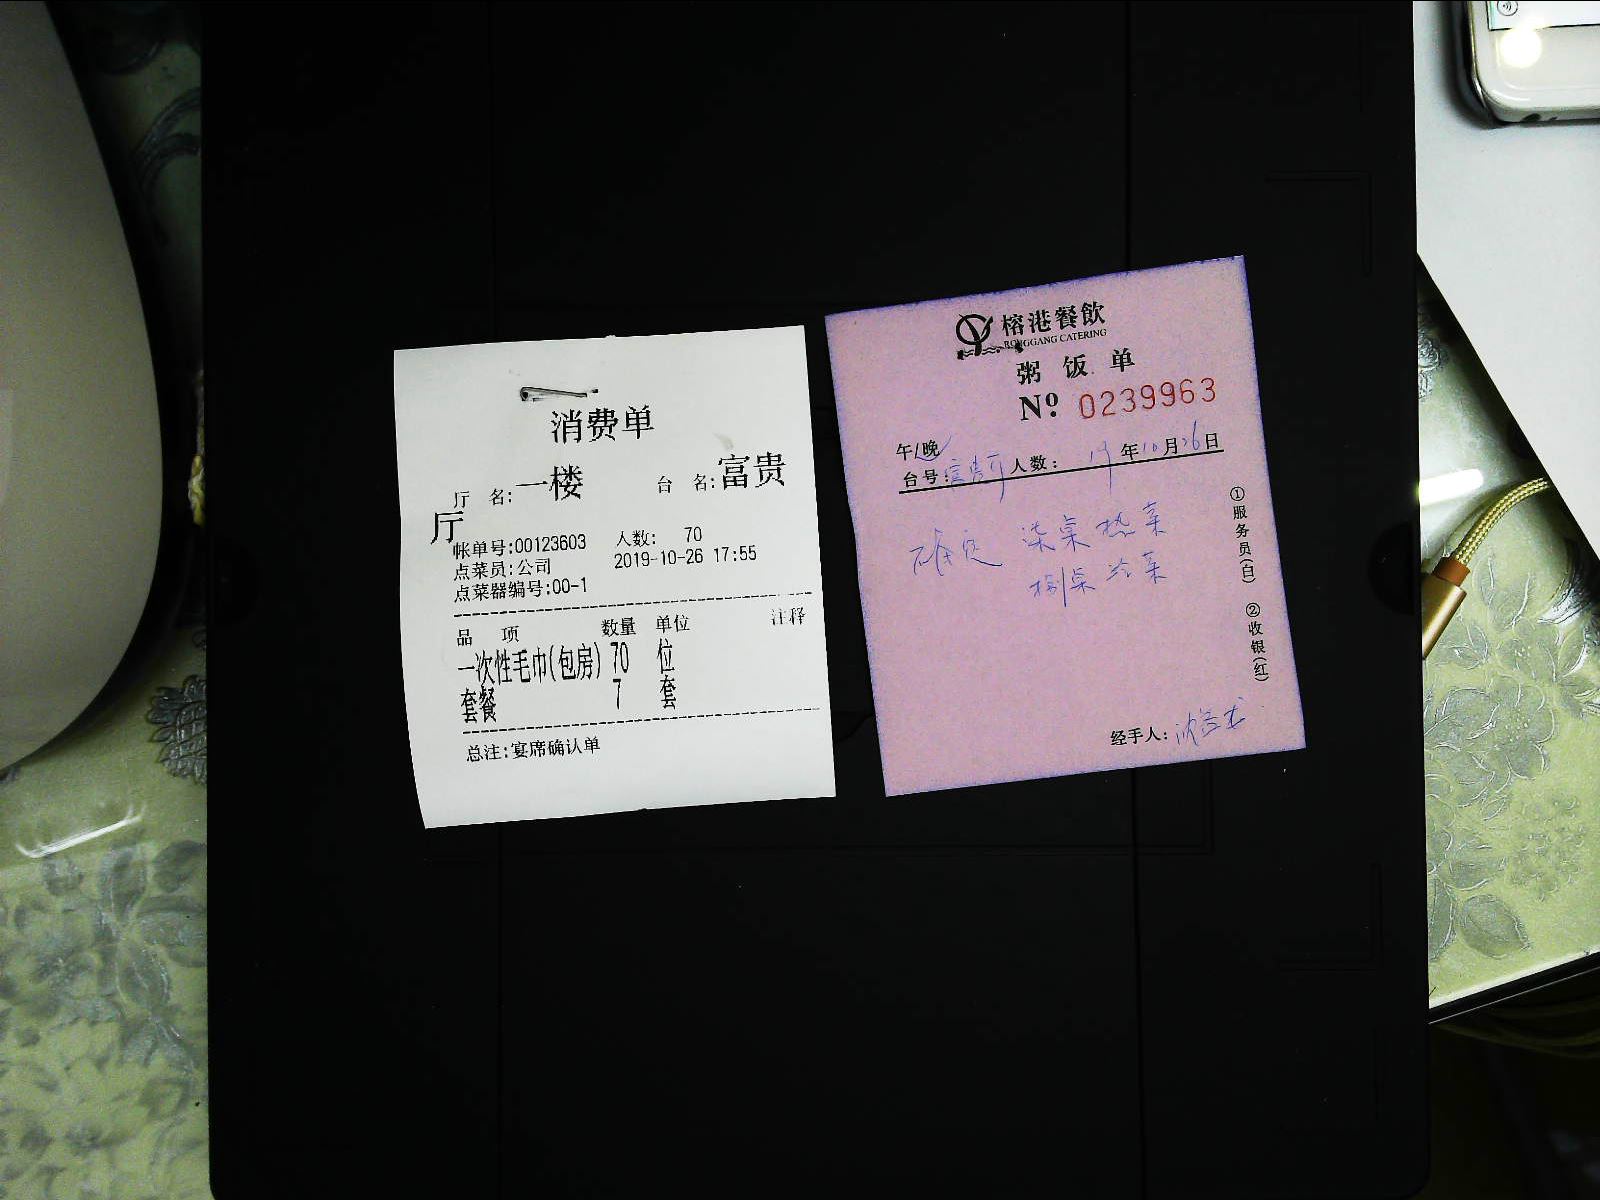 消费单
厅 名:一楼 台 名:富贵
厅
帐单号:00123603 人数: 70
点菜员:公司 2019-10-26 17:55
点菜器编号:00-1
品 项 数量 单位 注释
一次性毛巾(包房) 70 位
套餐 7 套
总注:宴席确认单
榕港餐飲
RONGGANG CATERING
粥 饭 单
Nº. 0239963
午/晚
台号:富贵厅 人数: 19年10月26日
确定 柒桌热菜
捌桌冷菜
①服务员(白) ②收银(红)
经手人: